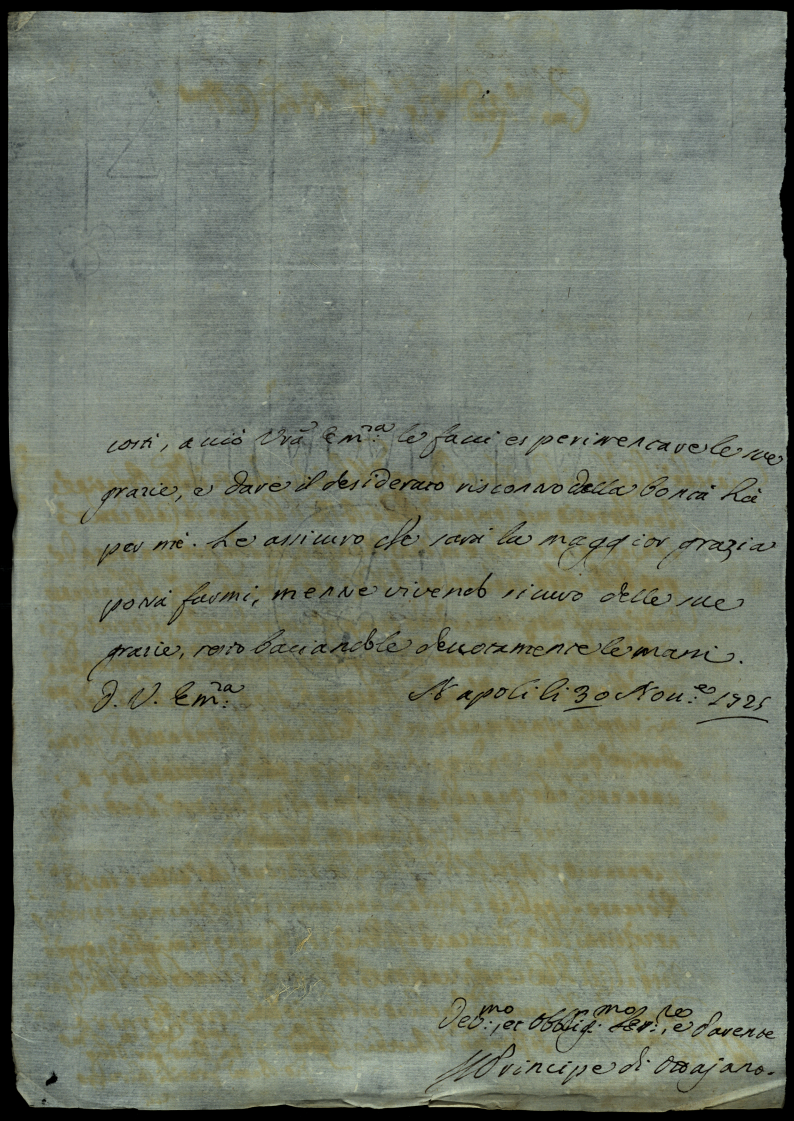 costi, acciò Vrã Em:ᶻᵃ le facci esperimentare le sue
grazie, e dare il desiderato riscontro della bontà hà
per mè. Le assicuro che sarà la maggior grazia
potrà farmi, mentre vivendo sicuro delle sue
grazie, resto baciandole devotamente le mani.
D. V. Em:ᶻᵃ Napoli li 30 Nov:ᵉ 1725
Dev:ᵐᵒ, et Obblig:ᵐᵒ Ser:ʳᵉ, e Parente
Il Principe di Ottajano.